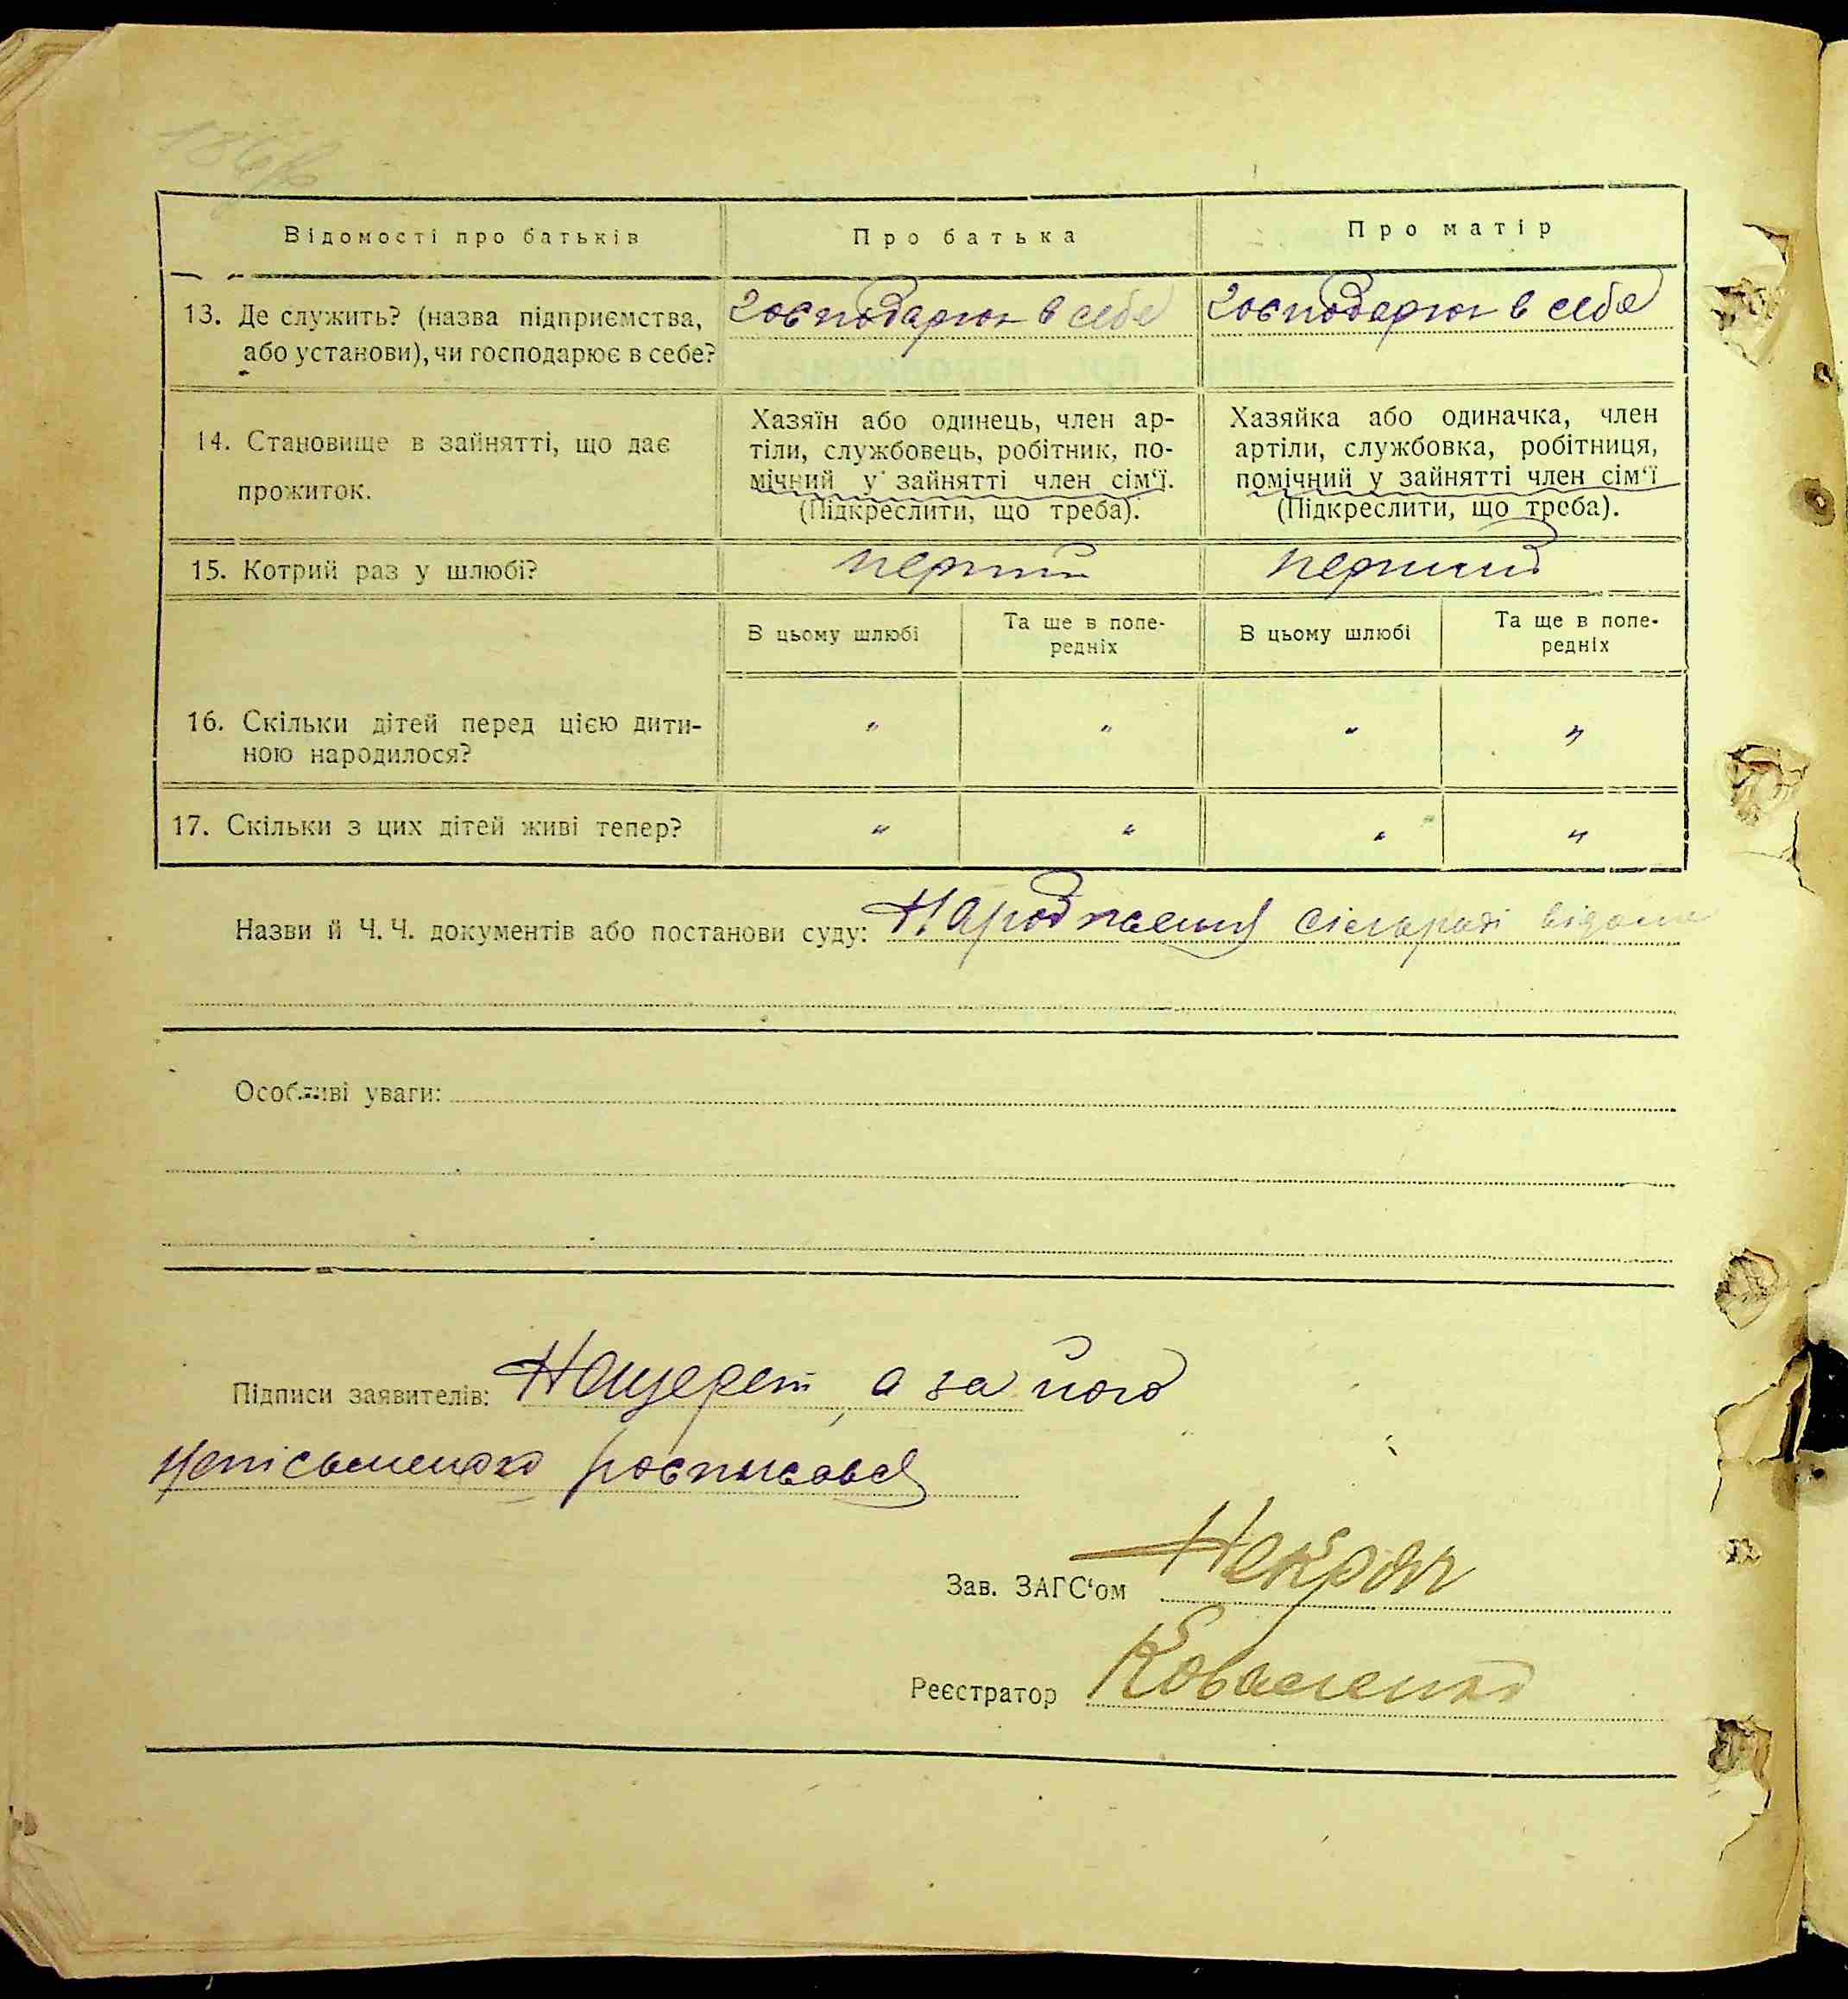 Відомості про батьків
Про батька
Про матір
13. Де служить? (назва підприємства,
або установи), чи господарює в себе?
господарює в себе
господарює в себе
14. Становище в зайнятті, що дає
прожиток.
Хазяїн або одинець, член ар-
тіли, службовець, робітник, по-
мічний у зайнятті член сім'ї.
(Підкреслити, що треба).
Хазяйка або одиначка, член
артіли, службовка, робітниця,
помічний у зайнятті член сім'ї
(Підкреслити, що треба).
15. Котрий раз у шлюбі?
перший
перший
В цьому шлюбі
Та ще в попе-
редніх
В цьому шлюбі
Та ще в попе-
редніх
16. Скільки дітей перед цією дити-
ною народилося?
" " " "
17. Скільки з цих дітей живі тепер?
" " " "
Назви й Ч. Ч. документів або постанови суду: Народження сільраді відоме
Особливі уваги:
Підписи заявителів: а за його
неписьменого росписався
Зав. ЗАГС'ом
Реєстратор Коваленко